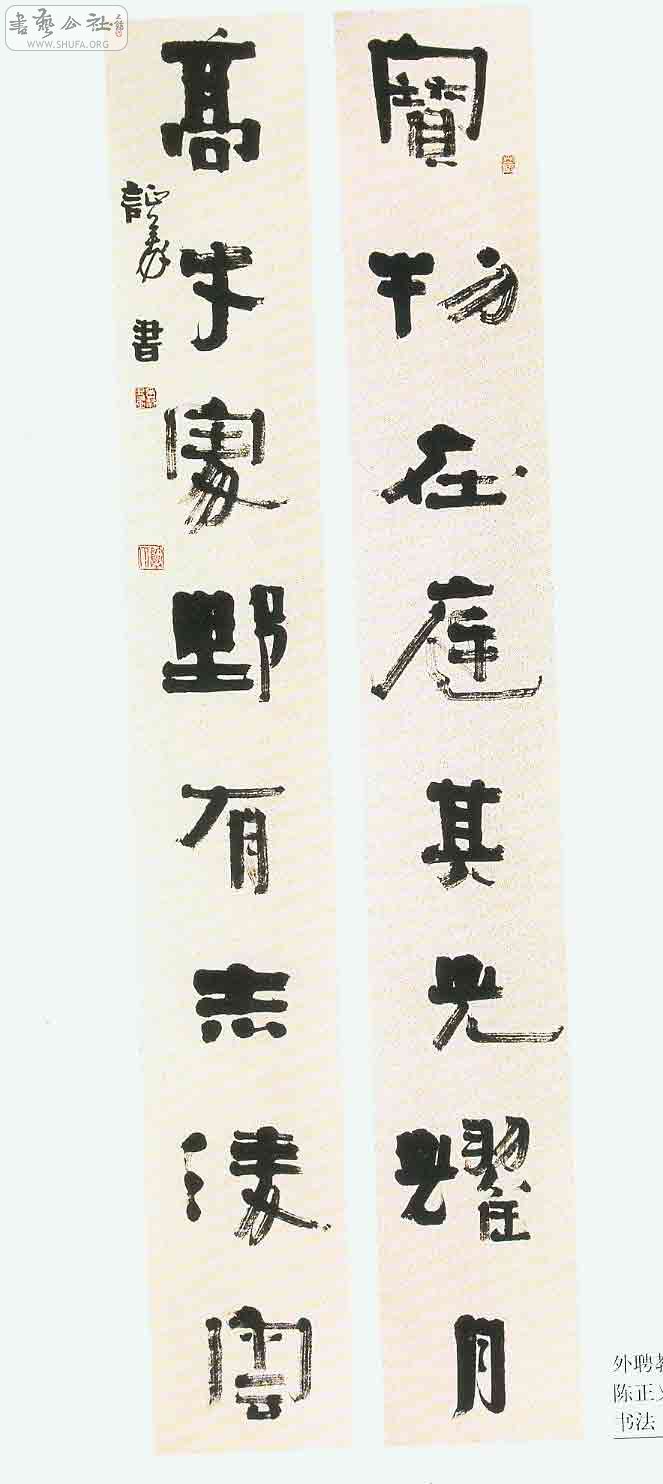 書藝公社
WWW.SHUFA.ORG
寶物在庭其光耀月
高才處野有志淩雲
証義書
外聘教
陈正义
书法